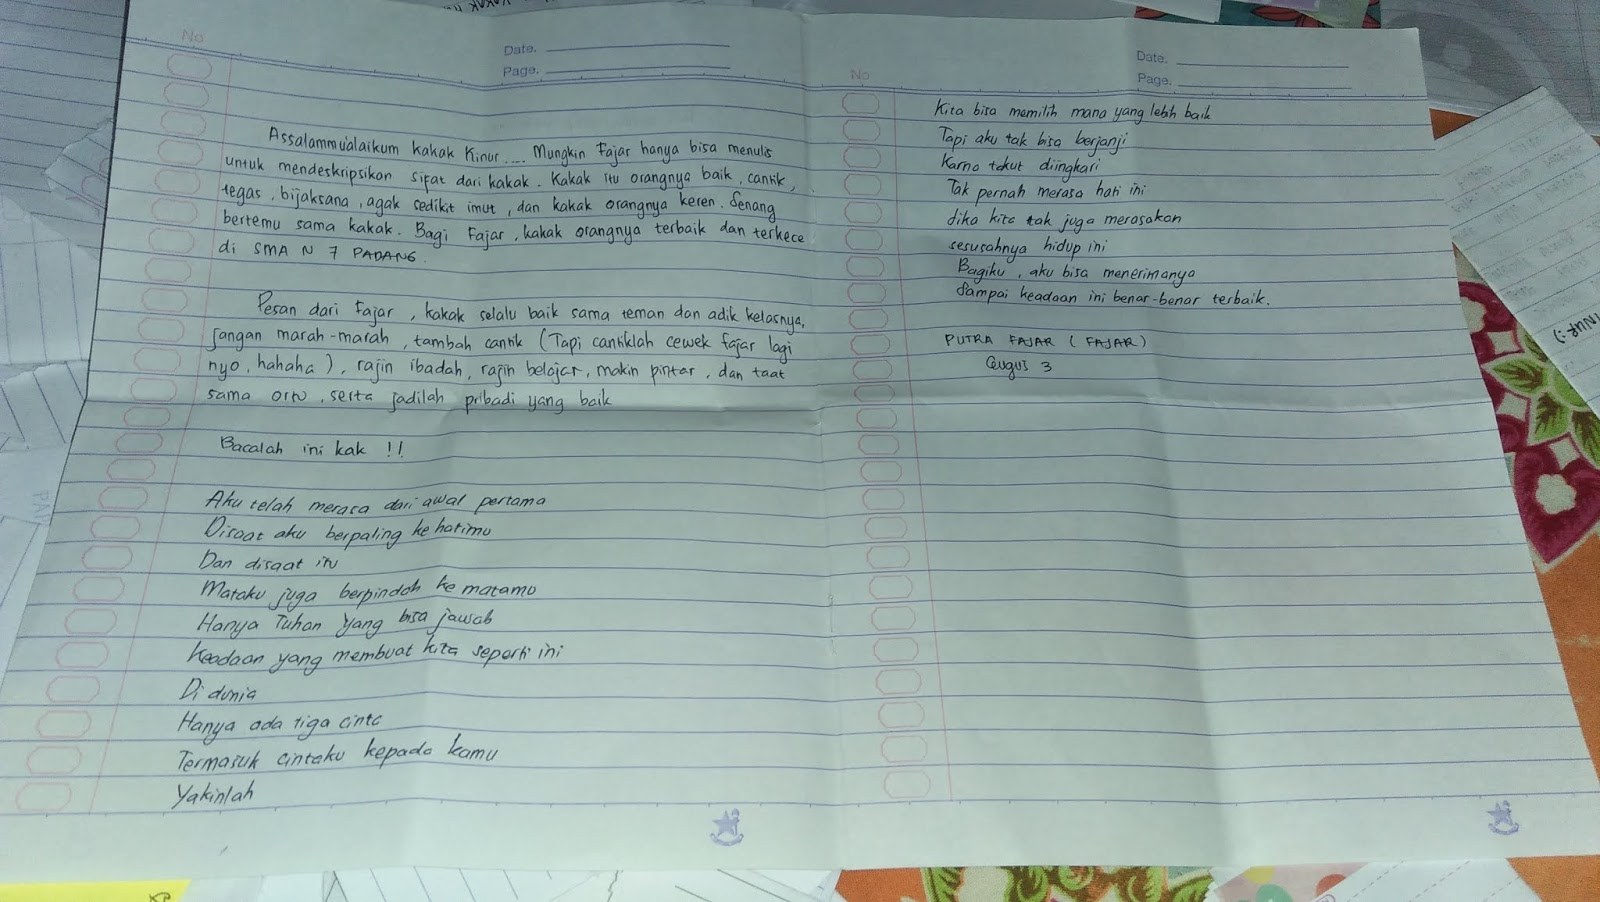 No
Date.
Page.
Assalammualaikum kakak Kinur .... Mungkin Fajar hanya bisa menulis
untuk mendeskripsikan sifat dari kakak. Kakak itu orangnya baik, cantik,
tegas, bijaksana, agak sedikit imut, dan kakak orangnya keren. Senang
bertemu sama kakak. Bagi Fajar, kakak orangnya terbaik dan terkece
di SMA N 7 PADANG.
Pesan dari Fajar, kakak selalu baik sama teman dan adik kelasnya,
jangan marah-marah, tambah cantik (Tapi cantiklah cewek fajar lagi
nyo, hahaha), rajin ibadah, rajin belajar, makin pintar, dan taat
sama ortu, serta jadilah pribadi yang baik
Bacalah ini kak !!
Aku telah merasa dari awal pertama
Disaat aku berpaling ke hatimu
Dan disaat itu
Mataku juga berpindah ke matamu
Hanya Tuhan yang bisa jawab
Keadaan yang membuat kita seperti ini
Di dunia
Hanya ada tiga cinta
Termasuk cintaku kepada kamu
Yakinlah
No
Date.
Page.
Kita bisa memilih mana yang lebih baik
Tapi aku tak bisa berjanji
Karna takut diingkari
Tak pernah merasa hati ini
Jika kita tak juga merasakan
sesusahnya hidup ini
Bagiku, aku bisa menerimanya
Sampai keadaan ini benar-benar terbaik.
PUTRA FAJAR (FAJAR)
Gugus 3
INUR :)